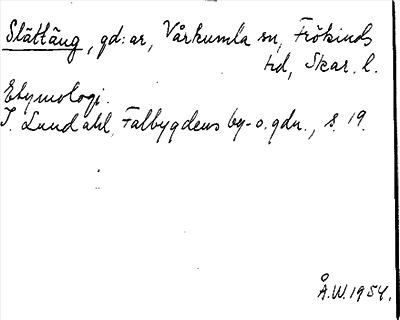 Slättäng, gd:ar, Vårkumla sn, Frökinds
hd, Skar. l.
Etymologi.
I. Lundahl, Falbygdens by- o. gdn., s. 19.
Å.W. 1954.